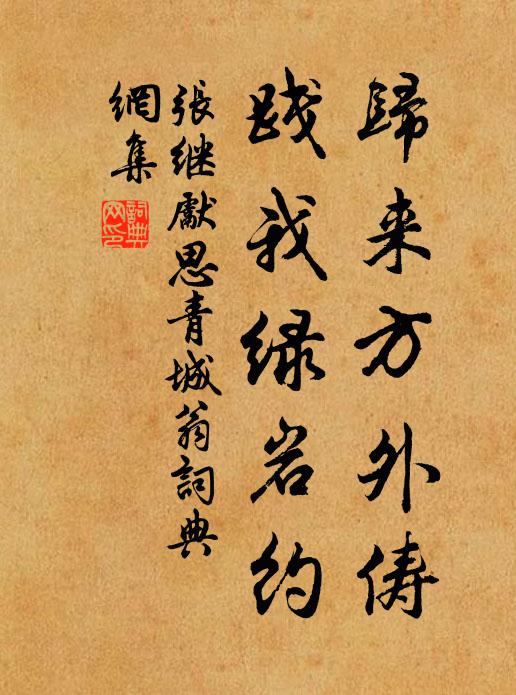 歸来方外俦
践我緑岩约
張继獻思青城翁詞典
網集
詞典
网印